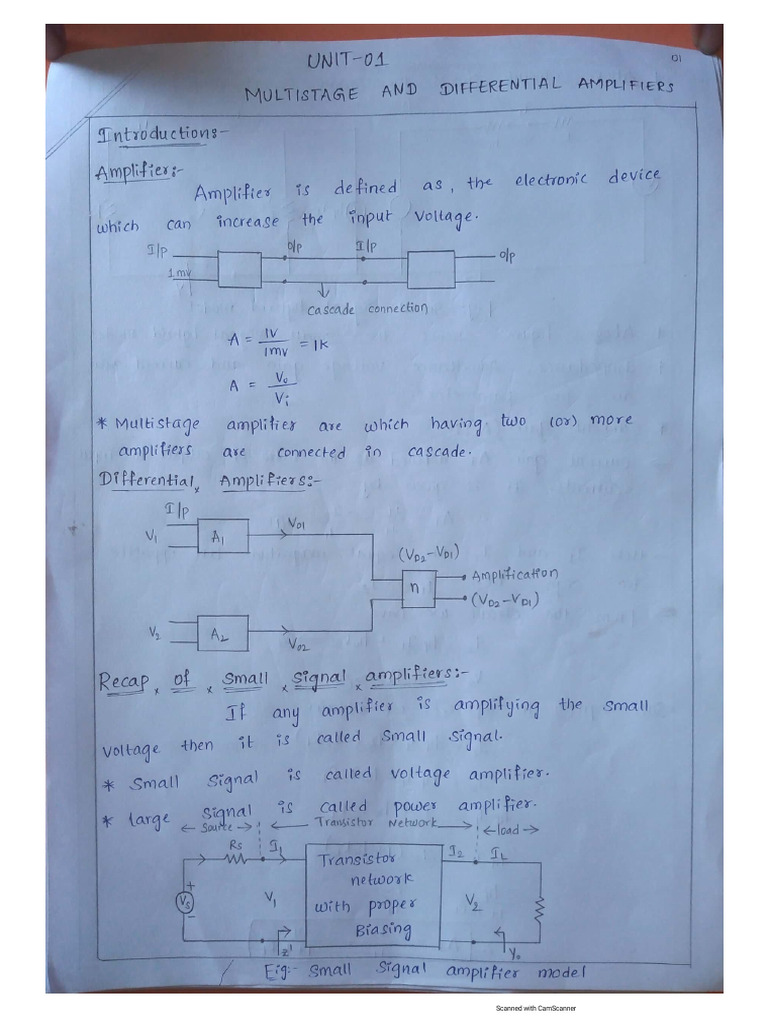 UNIT-01
01
MULTISTAGE AND DIFFERENTIAL AMPLIFIERS
Introductions:-
Amplifier:-
Amplifier is defined as, the electronic device
which can increase the input voltage.
I/P O/P I/P O/P
1mv
cascade connection
A = 1V/1mv = 1K
A = Vo/Vi
* Multistage amplifier are which having two (or) more
amplifiers are connected in cascade.
Differential Amplifiers:-
I/p
V1 A1 VO1
(VD2-VD1)
n Amplification
(VD2-VD1)
V2 A2 VO2
Recap of Small Signal amplifiers:-
If any amplifier is amplifying the small
voltage then it is called small signal.
* Small Signal is called voltage amplifier.
* large signal is called power amplifier.
Source Transistor Network load
Rs I1 Transistor I2 IL
network
+ Vs - V1 with proper V2
Biasing
Z1 Yo
Fig:- Small Signal amplifier model
Scanned with CamScanner